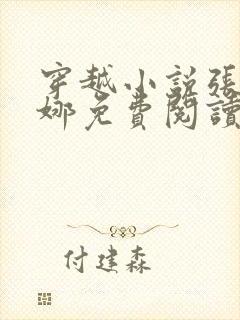 穿越小説張
娜免費閱讀
付建森